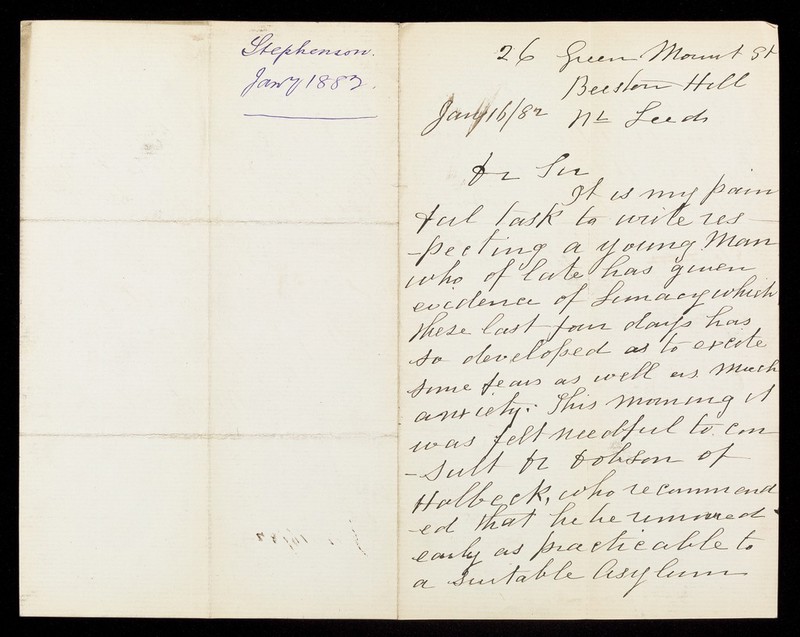 Stephenson.
Jany 1882.
26 Green Mount St
Beeston Hill
Jany 16/82 Nr Leeds
Dr Sir
It is my pain
ful task to write res
-pecting a young Man
who of late has given
evidence of Lunacy which
these last four days has
so developed as to excite
some fears as well as much
anxiety. This morning it
was felt needful to con
-sult Dr Dobson of
Holbeck, who recommend
-ed that he be removed
early as practicable to
a suitable Asylum